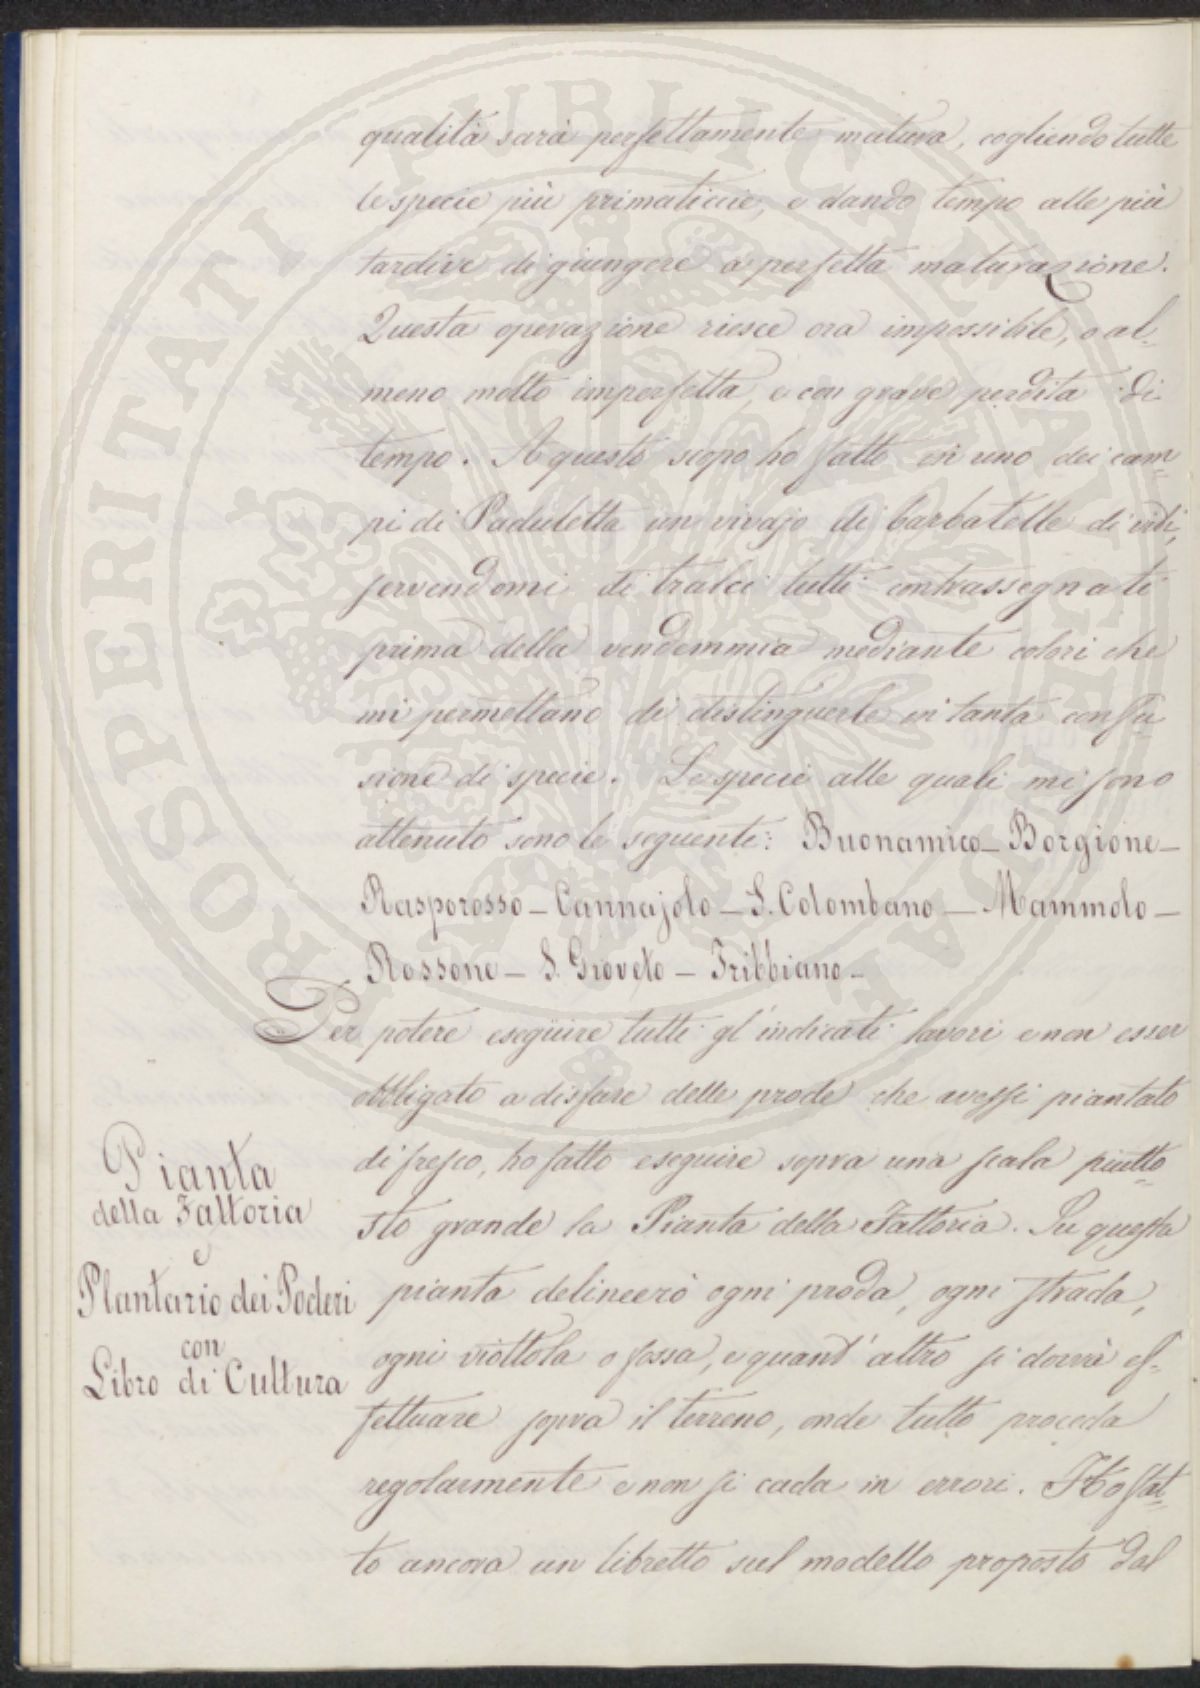 qualità sarà perfettamente matura, cogliendo tutte
le specie più primaticcie, e dando tempo alle più
tardive di giungere a perfetta maturazione.
Questa operazione riesce ora impossibile, o al-
meno molto imperfetta, e con grave perdita di
tempo. A questo scopo ho fatto in uno dei cam-
pi di Paduletta un vivajo di barbatelle di viti,
servendomi di tralci tutti contrassegnati
prima della vendemmia mediante colori che
mi permettano di distinguerle in tanta confu-
sione di specie. Le specie alle quali mi sono
attenuto sono le seguenti: Buonamico – Borgione –
Rasporosso – Cannajolo – S. Colombano – Mammolo –
Rossone – S. Gioveto – Tribbiano –
Per potere eseguire tutti gl'indicati lavori e non esser
obbligato a disfare delle prode che avessi piantato
di fresco, ho fatto eseguire sopra una scala piutto-
sto grande la Pianta della Fattoria. Su questa
pianta delineerò ogni proda, ogni strada,
ogni viottola o fossa, e quant'altro si dovrà ef-
fettuare sopra il terreno, onde tutto proceda
regolarmente e non si cada in errori. Ho fat-
to ancora un libretto sul modello proposto dal
Pianta
della Fattoria
e
Plantario dei Poderi
con
Libro di Cultura
PROSPERITATI PUBLICAE AUGENDAE